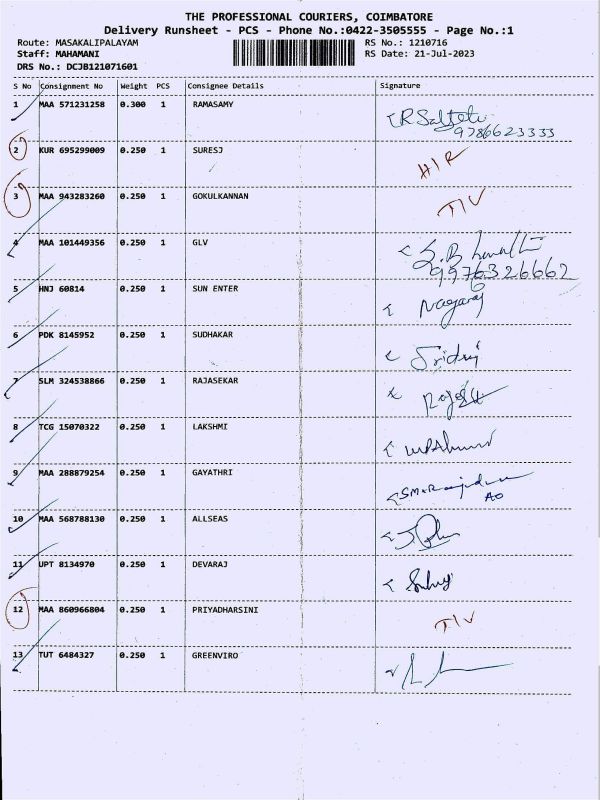 THE PROFESSIONAL COURIERS, COIMBATORE
Delivery Runsheet - PCS - Phone No.:0422-3505555 - Page No.:1
Route: MASAKALIPALAYAM RS No.: 1210716
Staff: MAHAMANI RS Date: 21-Jul-2023
DRS No.: DCJB121071601
S No Consignment No Weight PCS Consignee Details Signature
1 MAA 571231258 0.300 1 RAMASAMY
9786623333
2 KUR 695299009 0.250 1 SURESJ HIR
3 MAA 943283260 0.250 1 GOKULKANNAN TIV
4 MAA 101449356 0.250 1 GLV
9976326662
5 HNJ 60814 0.250 1 SUN ENTER Nagaraj
6 PDK 8145952 0.250 1 SUDHAKAR
7 SLM 324538866 0.250 1 RAJASEKAR
8 TCG 15070322 0.250 1 LAKSHMI
9 MAA 288879254 0.250 1 GAYATHRI
AO
10 MAA 568788130 0.250 1 ALLSEAS
11 UPT 8134970 0.250 1 DEVARAJ
12 MAA 860966804 0.250 1 PRIYADHARSINI TIV
13 TUT 6484327 0.250 1 GREENVIRO